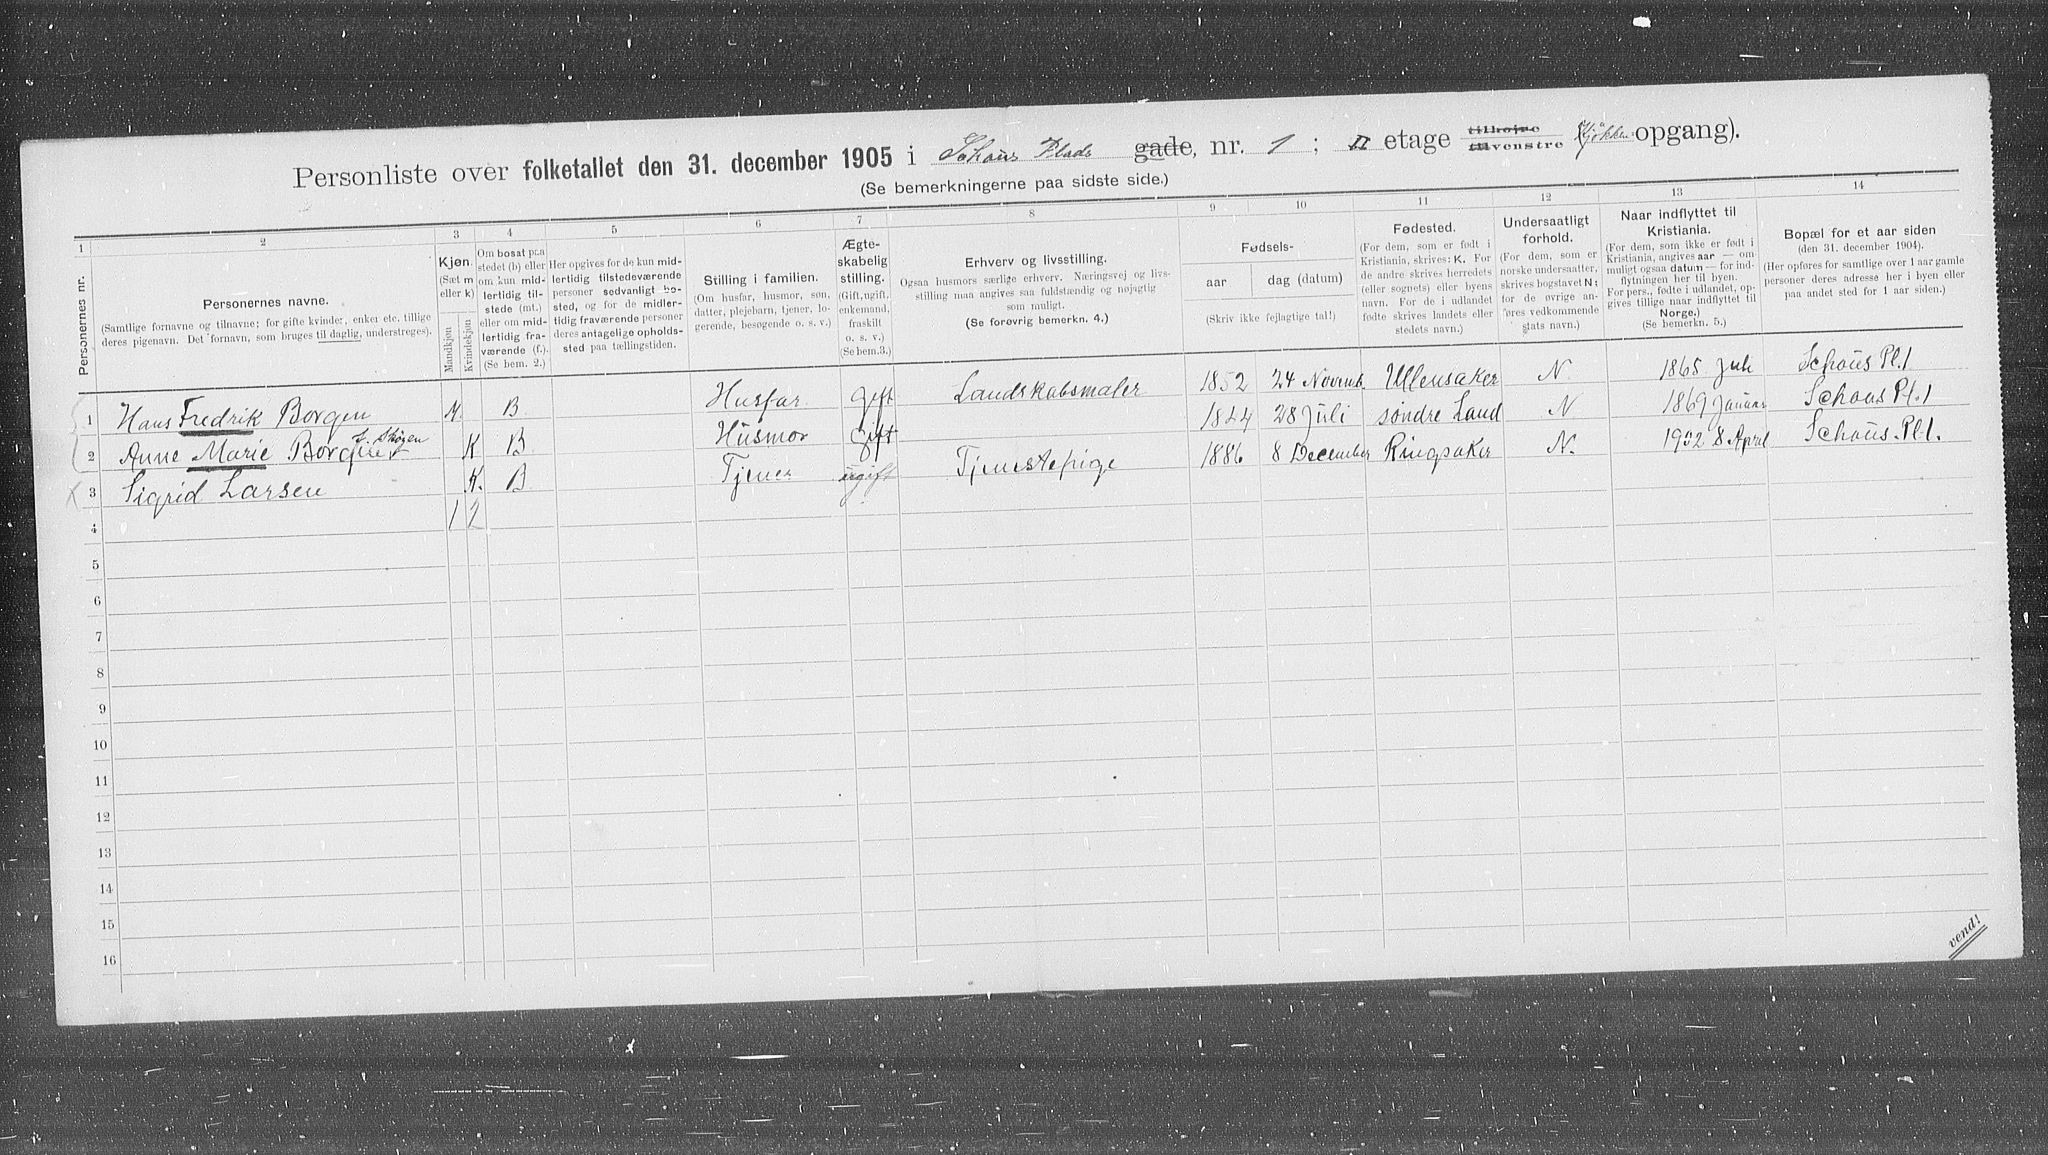 Personliste over folketallet den 31. december 1905 i Schous Plads gade, nr. 1 ; II etage tilhøjre tilvenstre Kjøkken opgang).
(Se bemerkningerne paa sidste side.)
1 2 3 4 5 6 7 8 9 10 11 12 13 14
Personernes nr.
Personernes navne.
(Samtlige fornavne og tilnavne; for gifte kvinder, enker etc. tillige
deres pigenavn. Det fornavn, som bruges til daglig, understreges).
Kjøn.
(Sæt m
eller k)
Mandkjøn
Kvindekjøn
Om bosat paa
stedet (b) eller
om kun mid-
lertidig til-
stede (mt.)
eller om mid-
lertidig fra-
værende (f.).
(Se bem. 2.)
Her opgives for de kun mid-
lertidig tilstedeværende
personer sedvanligt bo-
sted, og for de midler-
tidig fraværende personer
deres antagelige opholds-
sted paa tællingstiden.
Stilling i familien.
(Om husfar, husmor, søn,
datter, plejebarn, tjener, lo-
gerende, besøgende o. s. v.)
Ægte-
skabelig
stilling.
(Gift, ugift,
enkemand,
fraskilt
o. s. v.)
(Se bem.3.)
Erhverv og livsstilling.
Ogsaa husmors særlige erhverv. Næringsvej og livs-
stilling maa angives saa fuldstændig og nøjagtig
som muligt.
(Se forøvrig bemerkn. 4.)
Fødsels-
aar
dag (datum)
(Skriv ikke fejlagtige tal!)
Fødested.
(For dem, som er født i
Kristiania, skrives: K. For
de andre skrives herredets
(eller sognets) eller byens
navn. For de i udlandet
fødte skrives landets eller
stedets navn.)
Undersaatligt
forhold.
(For dem, som er
norske undersaatter,
skrives bogstavet N;
for de øvrige an-
føres vedkommende
stats navn.)
Naar indflyttet til
Kristiania.
(For dem, som ikke er født i
Kristiania, angives aar — om
muligt ogsaa datum — for ind-
flytningen her til byen.
For pers., fødte i udlandet, op-
gives tillige naar indflyttet til
Norge.)
(Se bemerkn. 5.)
Bopæl for et aar siden
(den 31. december 1904).
(Her opføres for samtlige over 1 aar gamle
personer deres adresse her i byen eller
paa andet sted for 1 aar siden.)
1 Hans Fredrik Borgen M. B Husfar Gift Landskabsmaler 1852 24 Novemb. Ullensaker N 1865 Juli Schous Pl. 1
2 Anne Marie Borgen f. Skøien K B Husmor Gift 1844 28 Juli søndre Land N 1869 Januar Schous Pl. 1
3 Sigrid Larsen K. B Tjener ugift Tjenestepige 1886 8 December Ringsaker N. 1902 8 April Schous. Pl. 1.
4 1 2
5
6
7
8
9
10
11
12
13
14
15
16
vend!